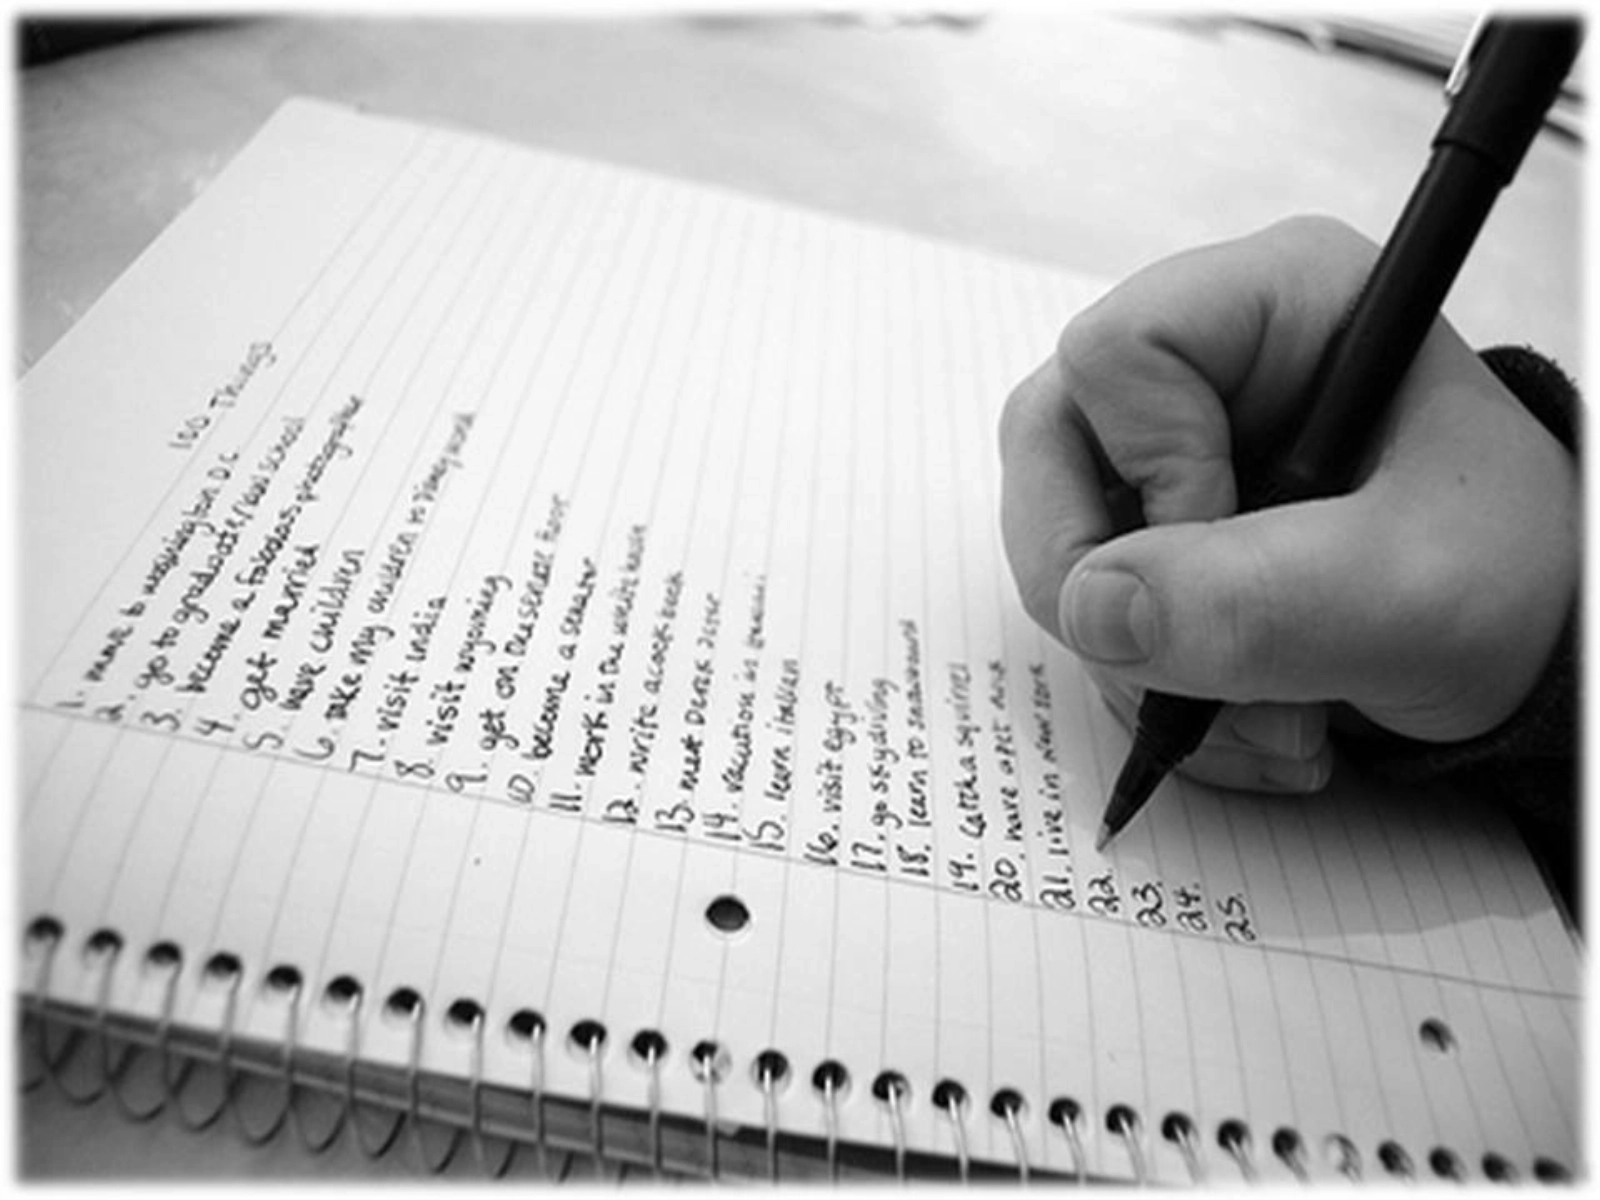 100 Things
1. move to washington D.C
2. go to graduate/law school
3. become a fabulous photographer
4. get married
5. have children
6. take my children to Disneyworld
7. visit india
8. visit wyoming
9. get on the senate floor
10. become a senator
11. work in the white house
12. write a cook book
13. meet Derek Jeter
14. vacation in
15. learn italian
16. visit egypt
17. go skydiving
18. learn to snowboard
19. catch a squirrel
20. have a pet
21. live in new york
22.
23.
24.
25.